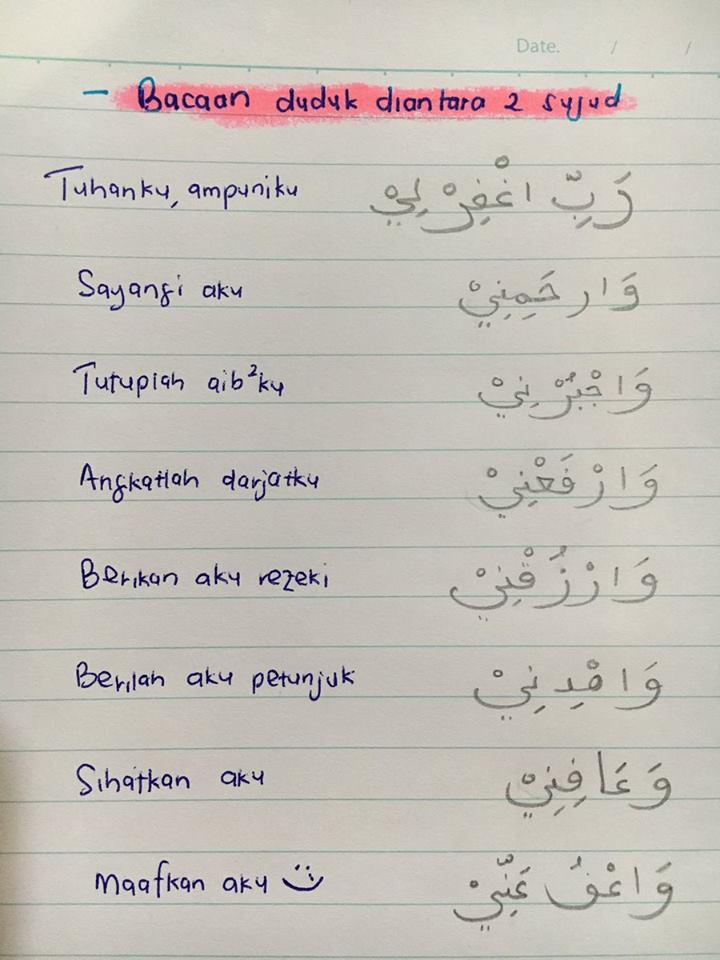 Date. / /
- Bacaan duduk diantara 2 sujud
Tuhanku, ampuniku رَبِّ اغْفِرْ لِيْ
Sayangi aku وَارحَمِنِيْ
Tutuplah aib²ku وَاجْبُرْنِيْ
Angkatlah darjatku وَارْفَعْنِيْ
Berikan aku rezeki وَارْزُقْنِيْ
Berilah aku petunjuk وَاهْدِنِيْ
Sihatkan aku وَعَافِنِيْ
Maafkan aku وَاعْفُ عَنِّيْ